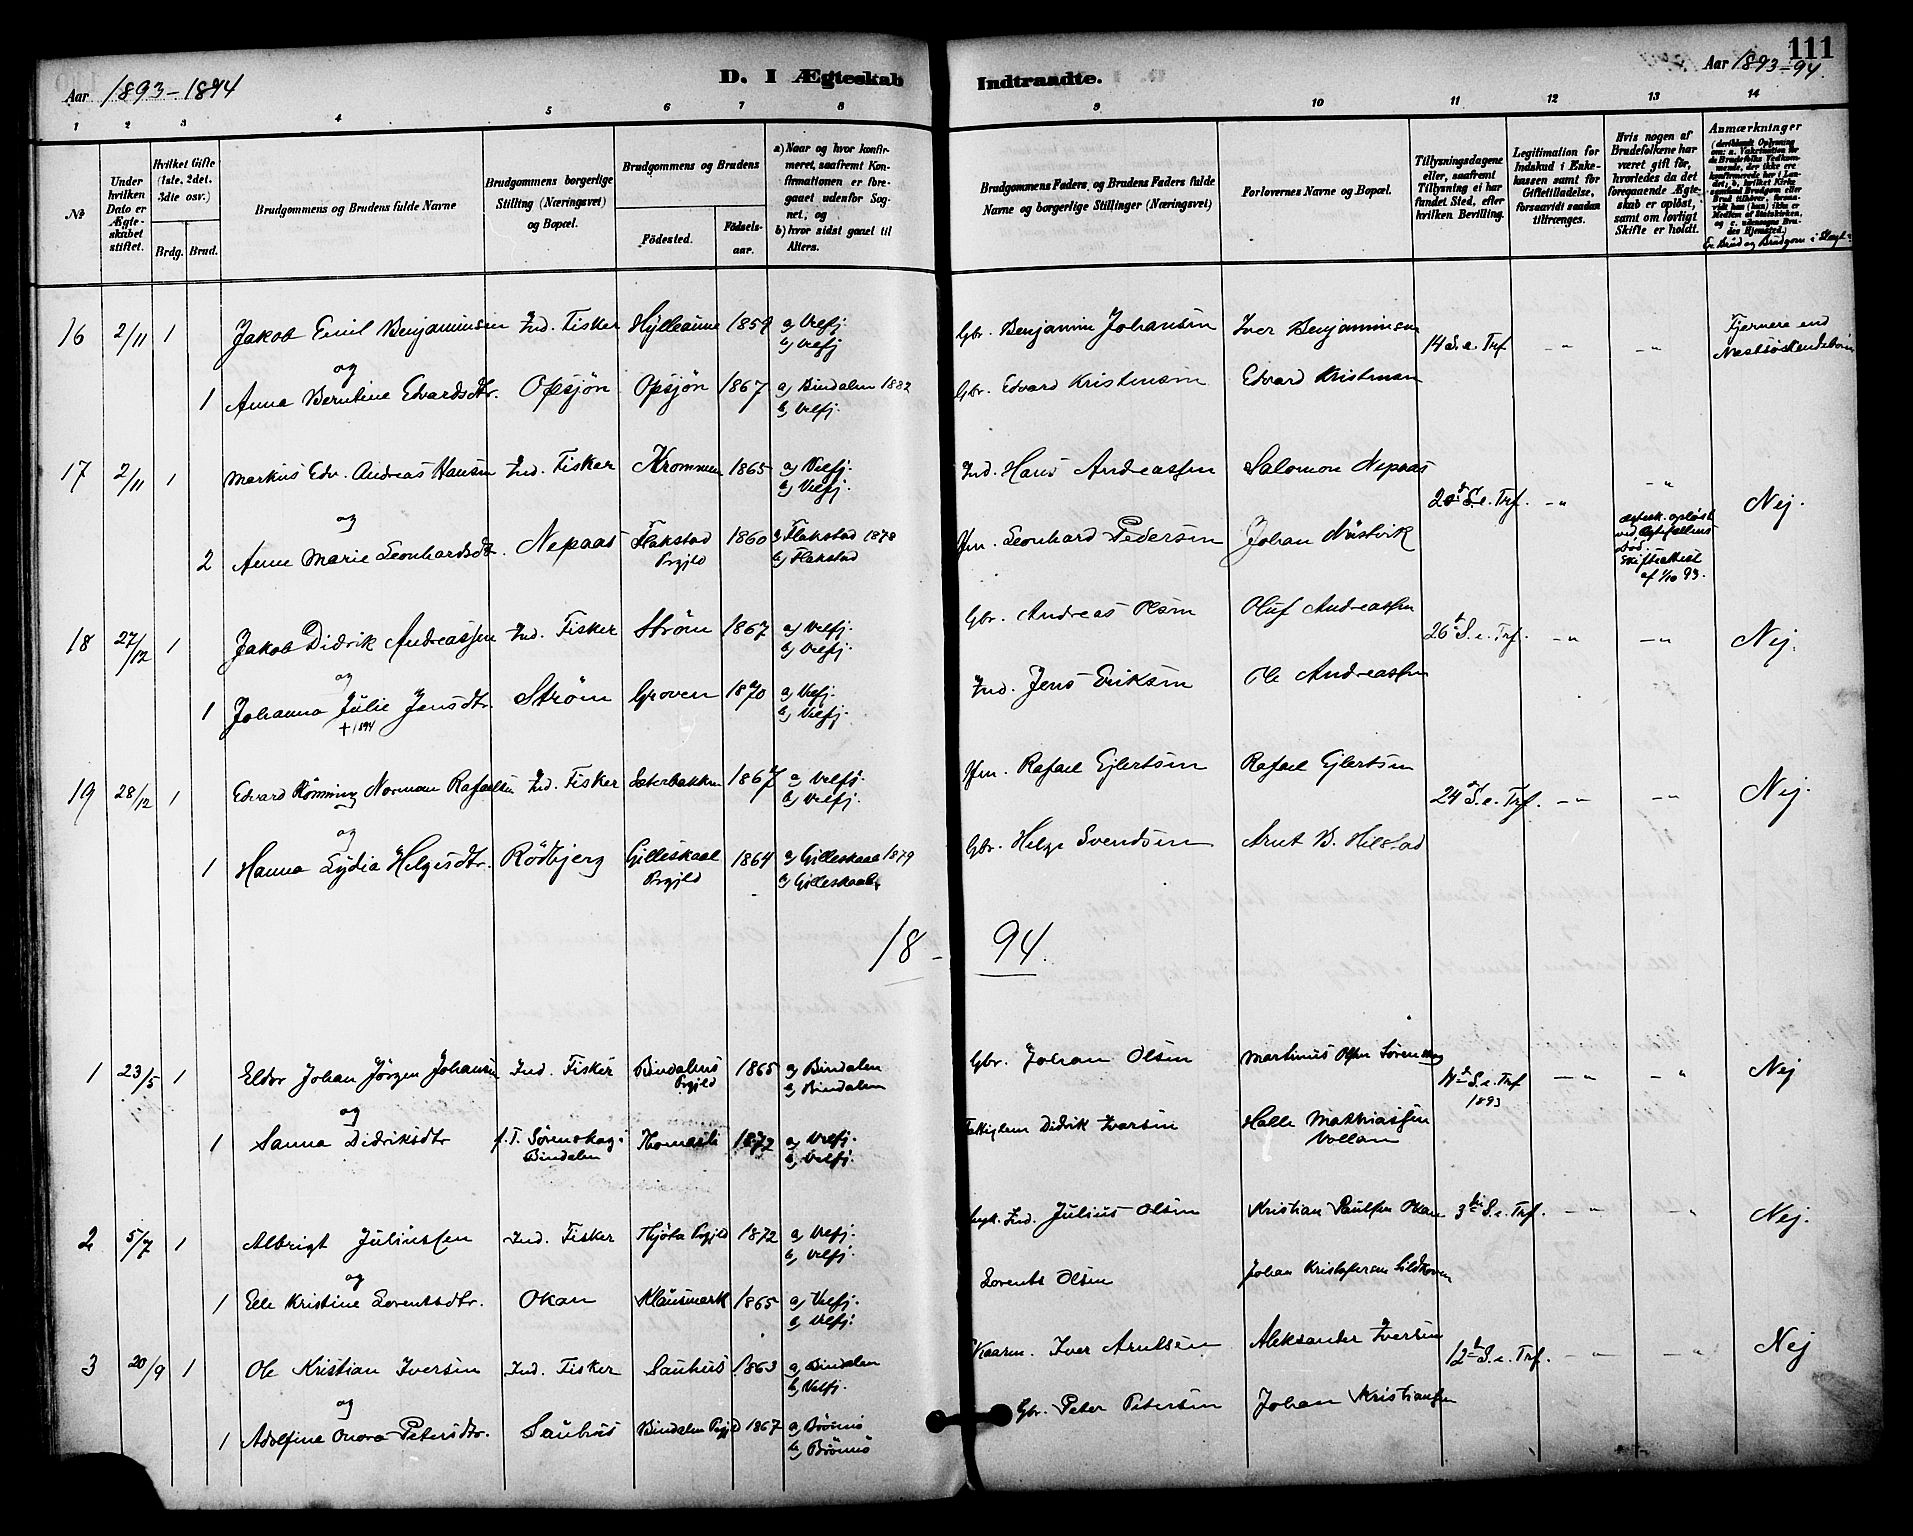 111
Aar 1893-1894
D. I Ægteskab Indtraadte.
Aar 1893-94.
1 2 3 4 5 6 7 8 9 10 11 12 13 14
№
Under hvilken Dato er Ægteskabet stiftet.
Hvilket Gifte (1ste, 2det, 3die osv.)
Brdg. Brud.
Brudgommens og Brudens fulde Navne
Brudgommens borgerlige Stilling (Næringsvei) og Bopæl.
Brudgommens og Brudens
Fødested.
Fødselsaar.
a) Naar og hvor konfirmeret, saafremt Konfirmationen er foregaaet udenfor Sognet; og
b) hvor sidst gaaet til Alters.
Brudgommens Faders, og Brudens Faders fulde Navne og borgerlige Stillinger (Næringsvei)
Forlovernes Navne og Bopæl.
Tillysningsdagene eller, saafremt Tillysning ei har fundet Sted, efter hvilken Bevilling.
Legitimation for Indskud i Enkekassen samt for Giftetilladelse, forsaavidt saadan tiltrænges.
Hvis nogen af Brudefolkene har været gift før, hvorledes da det foregaaende Ægteskab er opløst, samt om lovligt Skifte er holdt.
Anmærkninger
Er Brud og Brudgom i Slægt?
16 2/11 1 Jakob Emil Benjaminsen Ind. Fisker Hylleaune 1859 a) Velfj. b) Velfj Gbr. Benjamin Johansen Iver Benjaminsen 14 S. e. Trf -"- -"- Fjernere end Næstsøskendebørn
og
1 Anna Berntine Edvardsdtr. Opsjøn Opsjøn 1867 a) Bindalen 1882 b) Velfj. Gbr. Edvard Kristensen Edvard Kristensen
17 2/11 1 Markus Edv. Andreas Hansen Ind. Fisker Krommen 1865 a) Velfj. b) Velfj. Ind. Hans Andreassen Salomon Nepaas 20d. S. e. Trf. -"- -"- Nej.
og
2 Anne Marie Leonhardsdtr. Nepaas Flakstad Prgjld 1860 a) Flakstad 1878 b) Flakstad Leonhard Pedersen Johan Nustvik ægtesk. opløst ved Ægtefællens Død. Skifteattest af 1/10 93.
18 27/12 1 Jakob Didrik Andreassen Ind. Fisker Strøm 1867 a) Velfj. b) Velfj. Gbr. Andreas Olsen Oluf Andreassen 26d. S. e. Trf. -"- -"- Nej.
og
1 Johanna Julie Jensdtr. Strøm Groven 1870 a) Velfj. b) Velfj. Ind. Jens Eriksen Ole Andreassen
+ 1894
19 28/12 1 Edvard Rønning Norman Rafaelsen Ind. Fisker Sæterbakken 1867 a) Velfj. b) Velfj. Rafael Ejlertsen Rafael Ejlertsen 24d. S. e. Trf. -"- -"- Nej.
og
1 Hanna Lydia Helgesdtr. Rødbjerg Gilleskaal Prgjld 1864 a) Gilleskaal 1879 b) Gilleskaal. Gbr. Helge Svendsen Arnt B. Hilstad
18-94.
1 23/5 1 Eldor Johan Jørgen Johansen Ind. Fisker Bindalens Prgjld 1865 a) Bindalen b) Bindalen Gbr. Johan Olsen Martinus Olsen 4d. S. e. Trf 1893 -"- -"- Nej
og
1 Sanna Didriksdtr f. T. Sørenskag i Bindalen 1872 a) Velfj. b) Velfj. Didrik Iversen Halle Mathiassen Vollan
2 5/7 1 Albrigt Juliussen Ind. Fisker Thjøta Prgjld 1872 a) Velfj. b) Velfj. Ind. Julius Olsen Kristian Paulsen Okan 3die S. e. Trf. -"- -"- Nej.
og
1 Elle Kristine Lorentsdtr. Okan Klausmark 1865 a) Velfj. b) Velfj. Lorents Olsen Johan Kristofersen
3 20/9 1 Ole Kristian Iversen Ind. Fisker Sauhus 1863 a) Bindalen b) Velfj. Iver Arntsen Aleksander Iversen 12te S. e. Trf. -"- -"- Nej
og
1 Adolfine Onora Petersdtr. Sauhus Bindalen Prgjld 1867 a) Brønnø b) Brønnø Gbr. Peter Petersen Johan Kristiansen